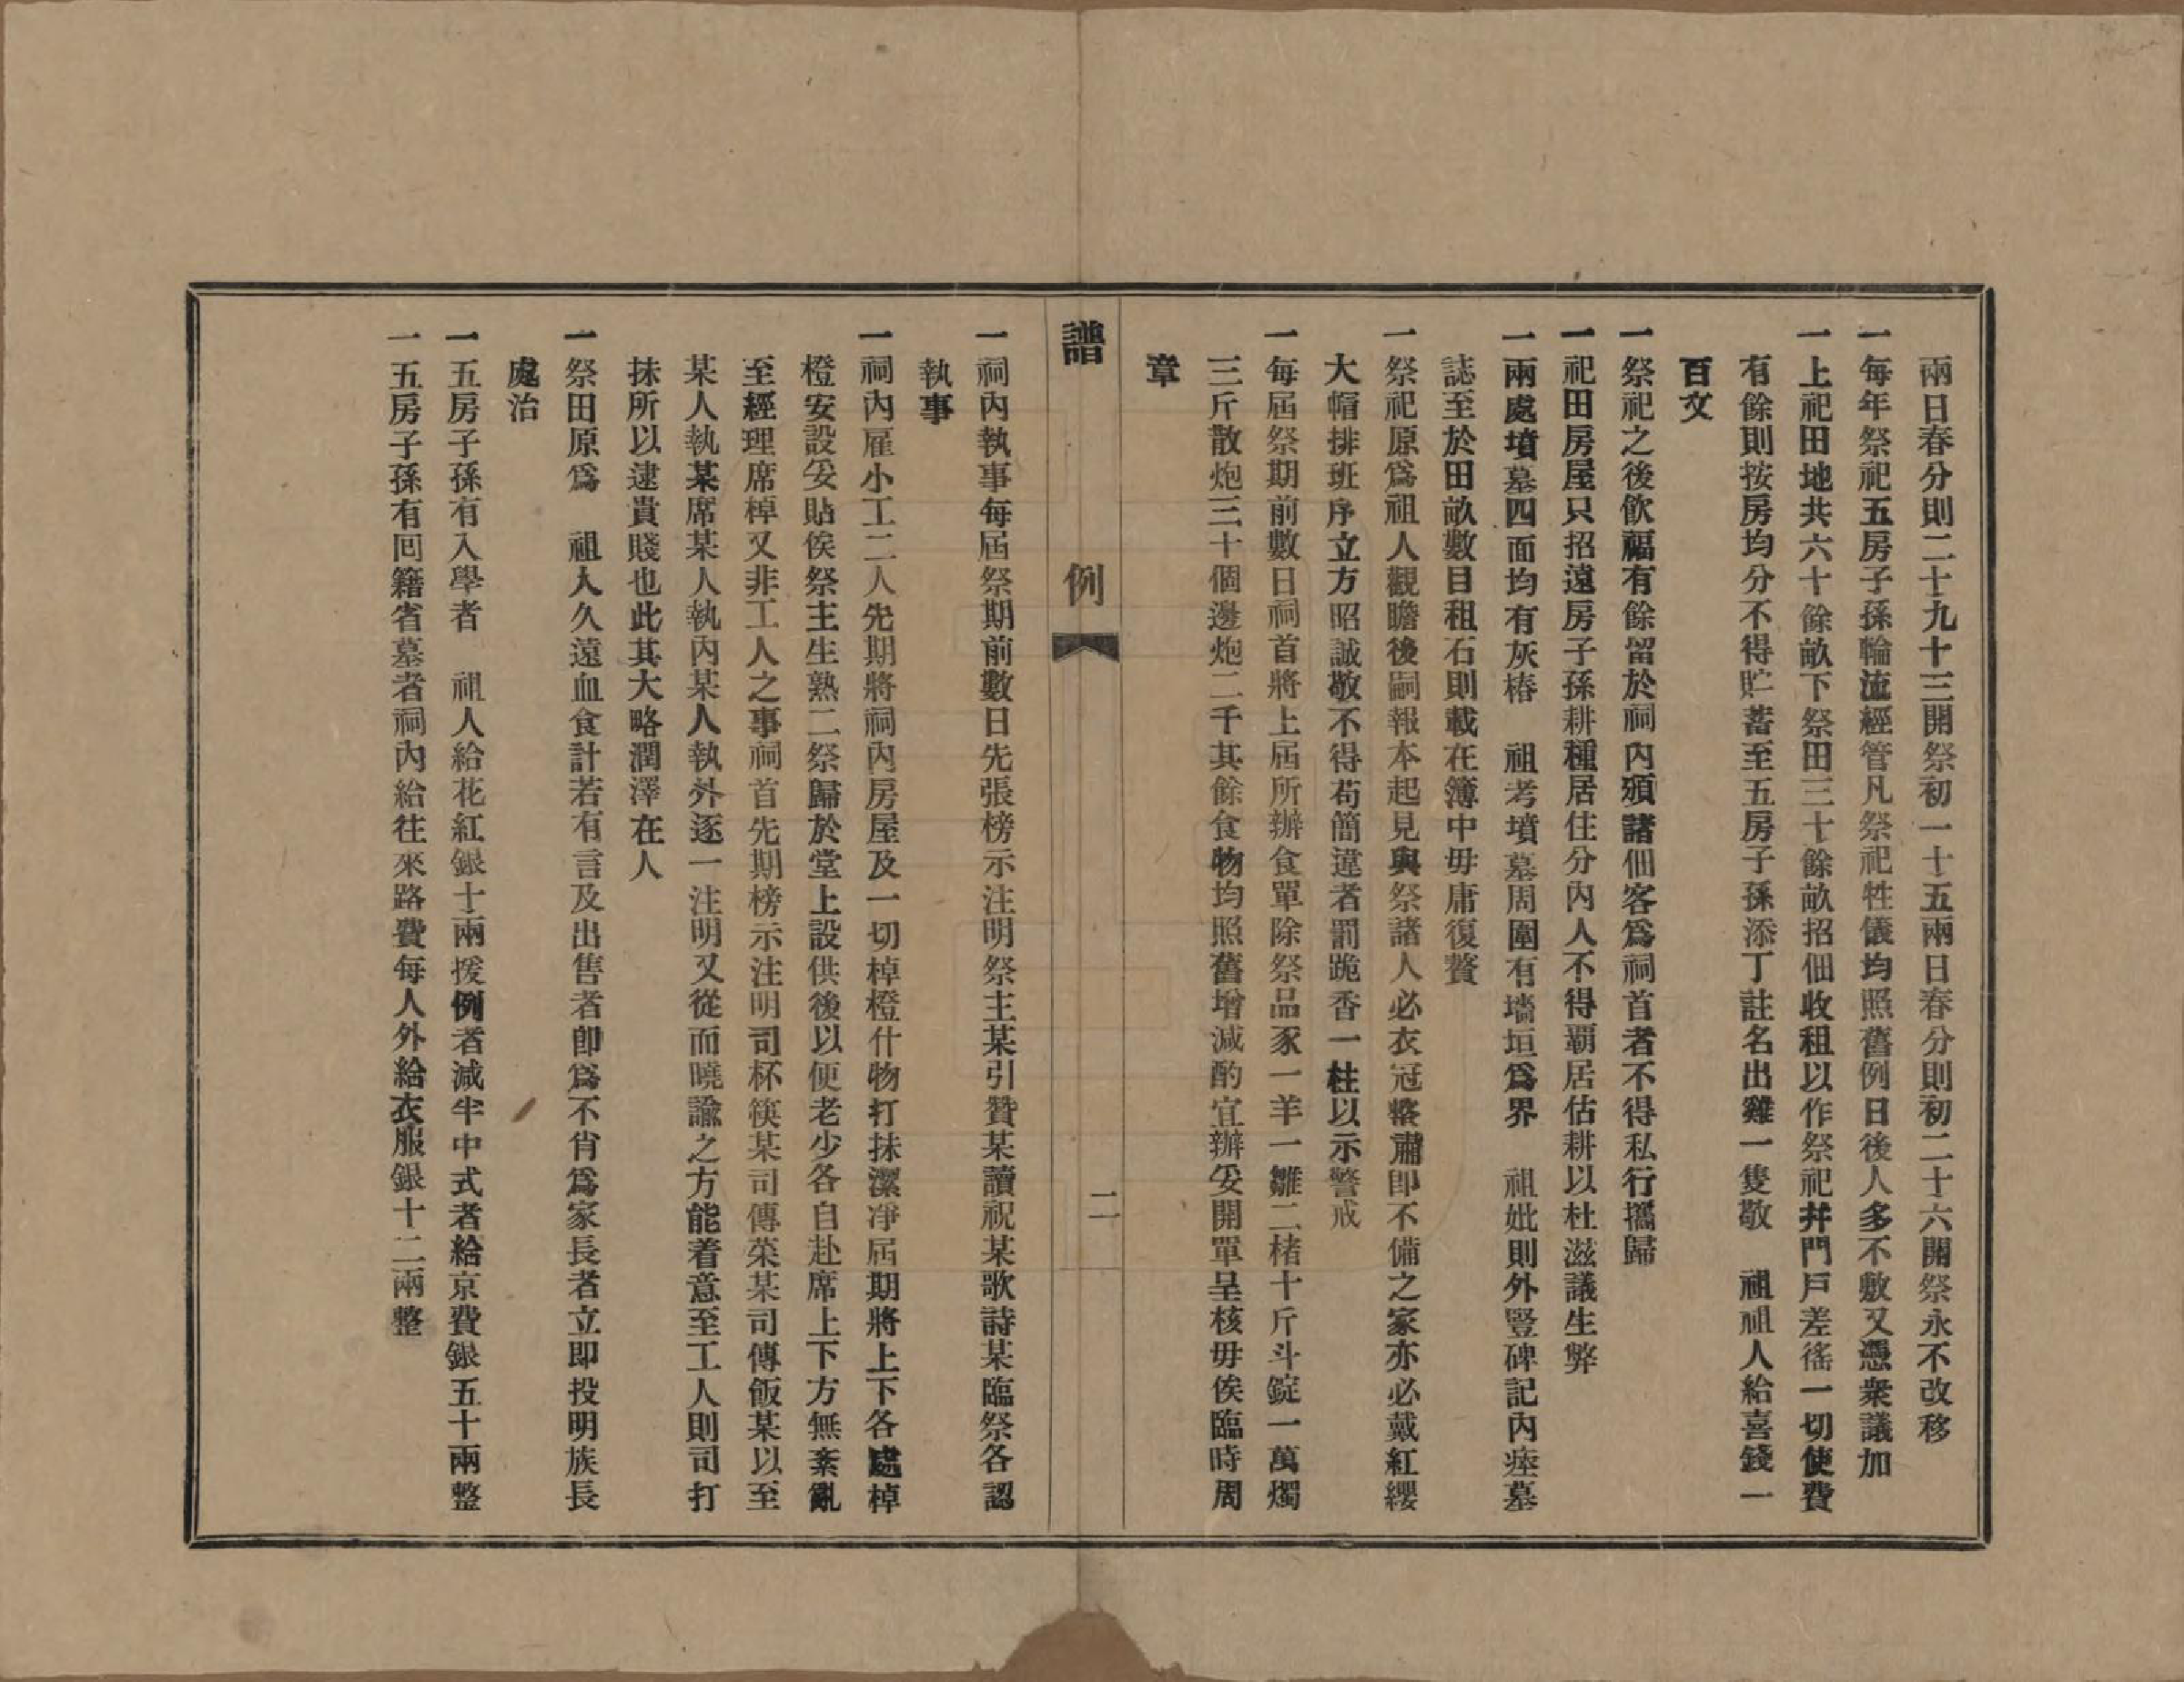 兩日春分則二十九十三開祭初一十五兩日春分則初二十六開祭永不改移
一每年祭祀五房子孫輪流經管凡祭祀牲儀均照舊例日後人多不敷又憑衆議加
一上祀田地共六十餘畝下祭田三十餘畝招佃收租以作祭祀幷門戶差徭一切使費
有餘則按房均分不得貯蓄至五房子孫添丁註名出雞一隻敬　祖祖人給喜錢一
百文
一祭祀之後飲福有餘留於祠內頒諸佃客爲祠首者不得私行攜歸
一祀田房屋只招遠房子孫耕種居住分內人不得覇居估耕以杜滋議生弊
一兩處墳墓四面均有灰樁　祖考墳墓周圍有墻垣爲界　祖妣則外豎碑記內瘞墓
誌至於田畝數目租石則載在簿中毋庸復贅
一祭祀原爲祖人觀瞻後嗣報本起見與祭諸人必衣冠整肅卽不備之家亦必戴紅纓
大帽排班序立方昭誠敬不得苟簡違者罰跪香一柱以示警戒
一每屆祭期前數日祠首將上屆所辦食單除祭品豕一羊一雛二楮十斤斗錠一萬燭
三斤散炮三十個邊炮二千其餘食物均照舊增減酌宜辦妥開單呈核毋俟臨時周
章
譜
例
二
一祠內執事每屆祭期前數日先張榜示注明祭主某引贊某讀祝某歌詩某臨祭各認
執事
一祠內雇小工二人先期將祠內房屋及一切棹橙什物打抹潔凈屆期將上下各處棹
橙安設妥貼俟祭主生熟二祭歸於堂上設供後以便老少各自赴席上下方無紊亂
至經理席棹又非工人之事祠首先期榜示注明司杯筷某司傳菜某司傳飯某以至
某人執某席某人執內某人執外逐一注明又從而曉諭之方能着意至工人則司打
抹所以逮貴賤也此其大略潤澤在人
一祭田原爲　祖人久遠血食計若有言及出售者卽爲不肖爲家長者立卽投明族長
處治
一五房子孫有入學者　祖人給花紅銀十兩援例者減半中式者給京費銀五十兩整
一五房子孫有回籍省墓者祠內給往來路費每人外給衣服銀十二兩整